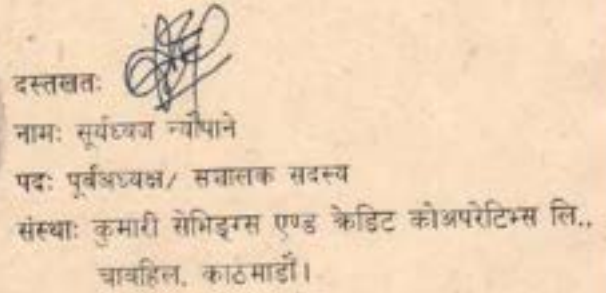 दस्तखतः
नामः सूर्यध्वज न्यौपाने
पदः पूर्वअध्यक्ष/ सञ्चालक सदस्य
संस्थाः कुमारी सेभिङ्ग्स एण्ड क्रेडिट कोअपरेटिभ्स लि.,
चावहिल, काठमाडौं।